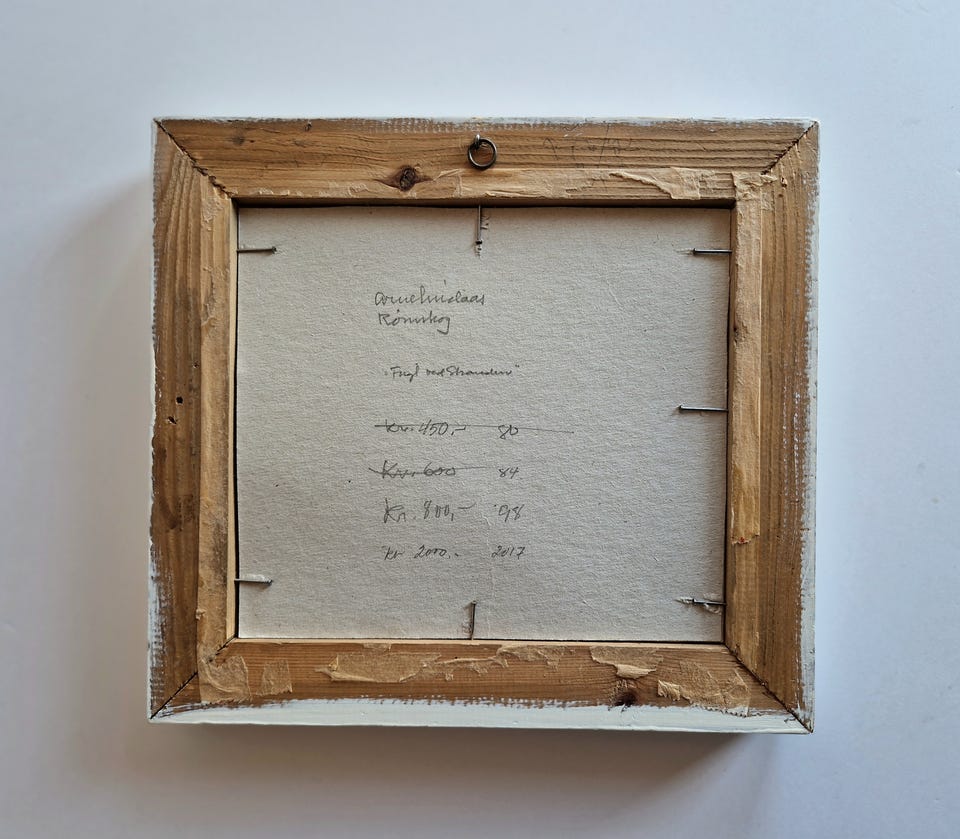 Rømskog
"Fugl ved Stranden"
Kr. 450,- 80
Kr. 600 84
Kr. 800,- '98
kr 2000,- 2017